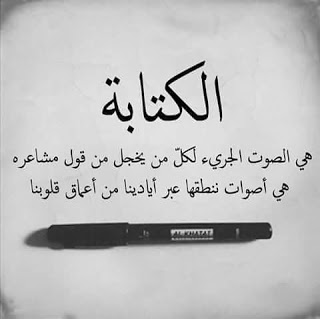 الكتابة
هي الصوت الجريء لكلّ من يخجل من قول مشاعره
هي أصوات ننطقها عبر أيادينا من أعماق قلوبنا
AL-KHATAT